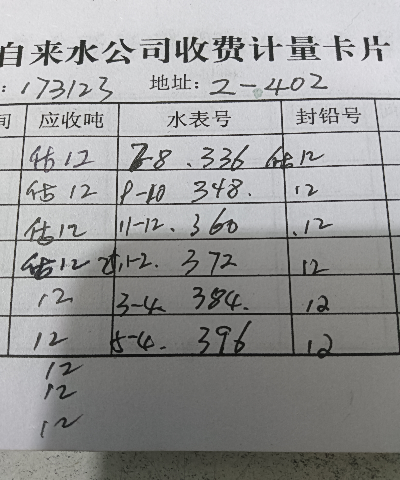 自来水公司收费计量卡片
: 173123 地址: 2-402
间 应收吨 水表号 封铅号
估12 7-8. 336 估12
估12 9-10 348. 12
估12 11-12. 360 .12
估12 1-2. 372 12
12 3-4. 384. 12
12 5-4. 396 12
12
12
12